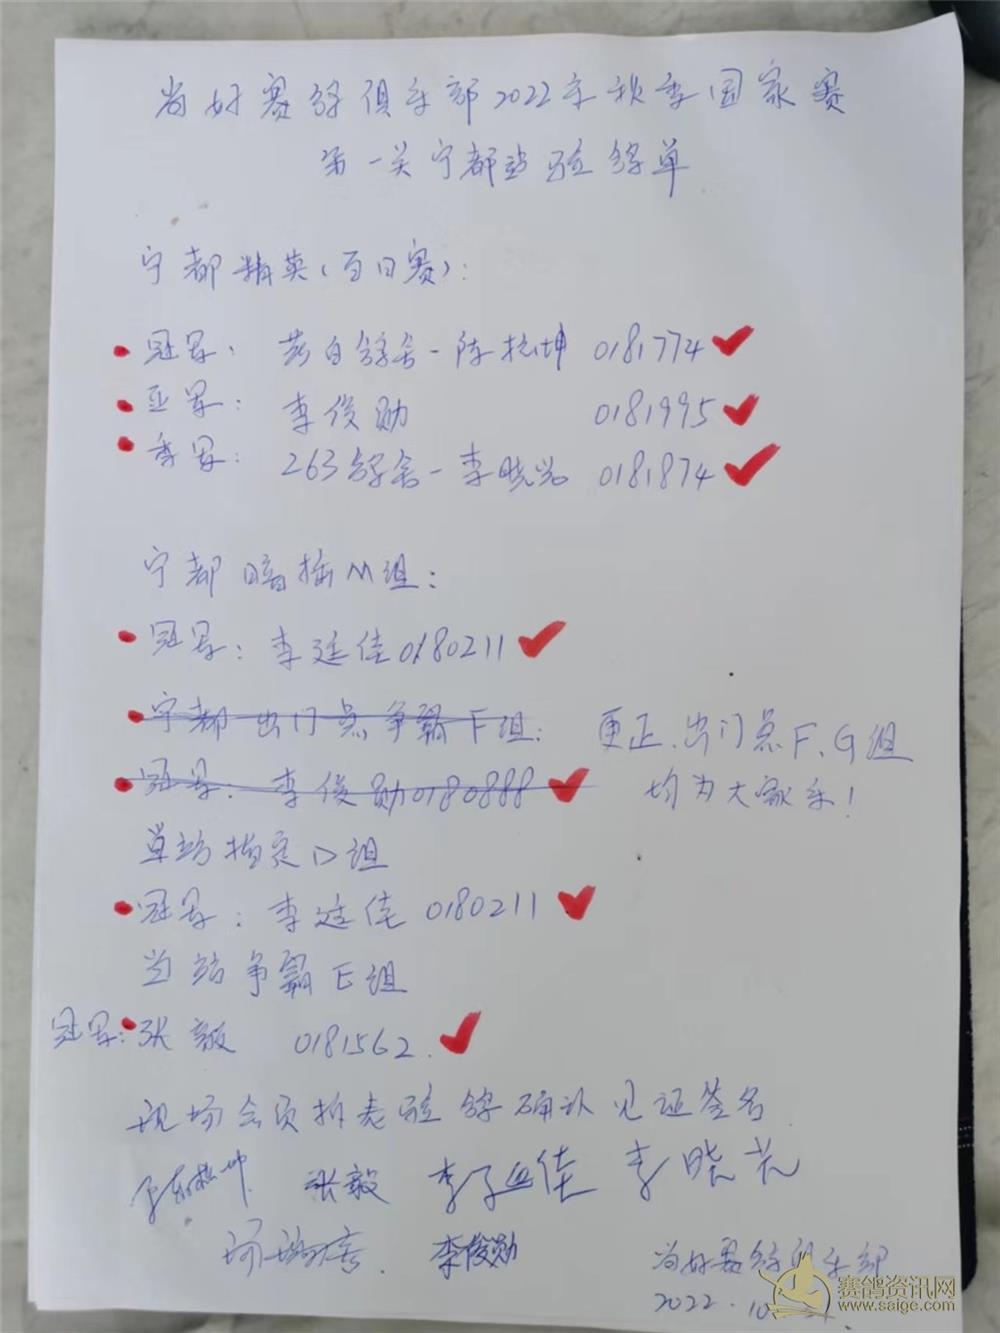 尚好赛鸽俱乐部2022年秋季国家赛
第一关宁都站验鸽单
宁都精英(百日赛):
冠军: 鸽舍-陈松坤 0181774
亚军: 李俊勋 0181995
季军: 263鸽舍-李晓光 0181874
宁都暗插M组:
冠军: 李廷佳0180211
宁都出门点争霸F组: 更正、出门点F、G组
冠军: 李俊勋0180888 均为大家乐!
单站指定D组
冠军: 李廷佳 0180211
当站争霸E组
冠军: 张毅 0181562.
现场会员拍卖验鸽确认见证签名
张毅 李廷佳 李晓光
李俊勋 尚好赛鸽俱乐部
2022.10.
赛鸽资讯网
www.saige.com